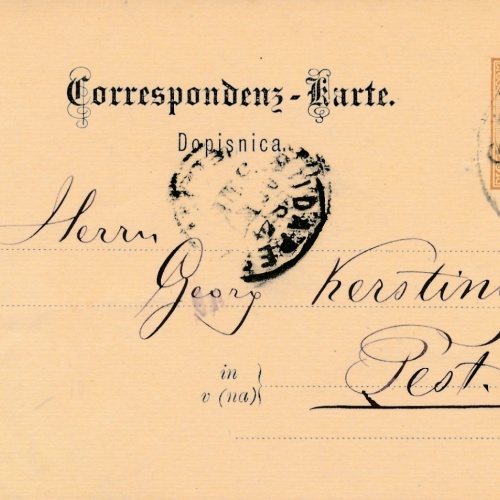 Correspondenz-Karte.
Dopisnica.
Herrn
Georg Kerstin
Pest.
in
v (na)